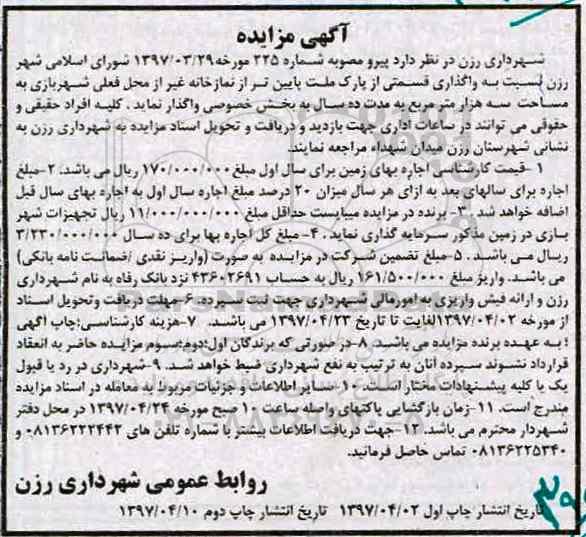 آگهی مزایده
شهرداری رزن در نظر دارد پیرو مصوبه شماره ۲۲۵ مورخه ۱۳۹۷/۰۳/۲۹ شورای اسلامی شهر
رزن نسبت به واگذاری قسمتی از پارک ملت پایین تر از نمازخانه غیر از محل فعلی شهربازی به
مساحت سه هزار متر مربع به مدت ده سال به بخش خصوصی واگذار نماید . کلیه افراد حقیقی و
حقوقی می توانند در ساعات اداری جهت بازدید و دریافت و تحویل اسناد مزایده به شهرداری رزن به
نشانی شهرستان رزن میدان شهداء مراجعه نمایند.
۱-قیمت کارشناسی اجاره بهای زمین برای سال اول مبلغ ۱۷۰/۰۰۰/۰۰۰ ریال می باشد. ۲-مبلغ
اجاره برای سالهای بعد به ازای هر سال میزان ۲۰ درصد مبلغ اجاره سال اول به اجاره بهای سال قبل
اضافه خواهد شد .۳- برنده در مزایده میبایست حداقل مبلغ ۱۱/۰۰۰/۰۰۰/۰۰۰ ریال تجهیزات شهر
بازی در زمین مذکور سرمایه گذاری نماید . ۴-مبلغ کل اجاره بها برای ده سال ۳/۲۳۰/۰۰۰/۰۰۰
ریال می باشد . ۵-مبلغ تضمین شرکت در مزایده به صورت (واریز نقدی /ضمانت نامه بانکی)
می باشد. واریز مبلغ ۱۶۱/۵۰۰/۰۰۰ ریال به حساب ۴۳۶۰۲۶۹۱ نزد بانک رفاه به نام شهرداری
رزن و ارائه فیش واریزی به امورمالی شهرداری جهت ثبت سپرده. ۶-مهلت دریافت وتحویل اسناد
از مورخه ۱۳۹۷/۰۴/۰۲لغایت تا تاریخ ۱۳۹۷/۰۴/۲۳ می باشد. ۷-هزینه کارشناسی؛چاپ آگهی
؛ به عهده برنده مزایده می باشد. ۸-در صورتی که برندگان اول؛دوم؛سوم مزایده حاضر به انعقاد
قرارداد نشوند سپرده آنان به ترتیب به نفع شهرداری ضبط خواهد شد. ۹-شهرداری در رد یا قبول
یک یا کلیه پیشنهادات مختار است. ۱۰-سایر اطلاعات و جزئیات مربوط به معامله در اسناد مزایده
مندرج است. ۱۱-زمان بازگشایی پاکتهای واصله ساعت ۱۰ صبح مورخه ۱۳۹۷/۰۴/۲۴ در محل دفتر
شهردار محترم می باشد. ۱۲-جهت دریافت اطلاعات بیشتر با شماره تلفن های ۰۸۱۳۶۲۲۲۴۴۲ و
۰۸۱۳۶۲۲۵۳۴۰ تماس حاصل فرمائید.
روابط عمومی شهرداری رزن
تاریخ انتشار چاپ اول ۱۳۹۷/۰۴/۰۲ تاریخ انتشار چاپ دوم ۱۳۹۷/۰۴/۱۰